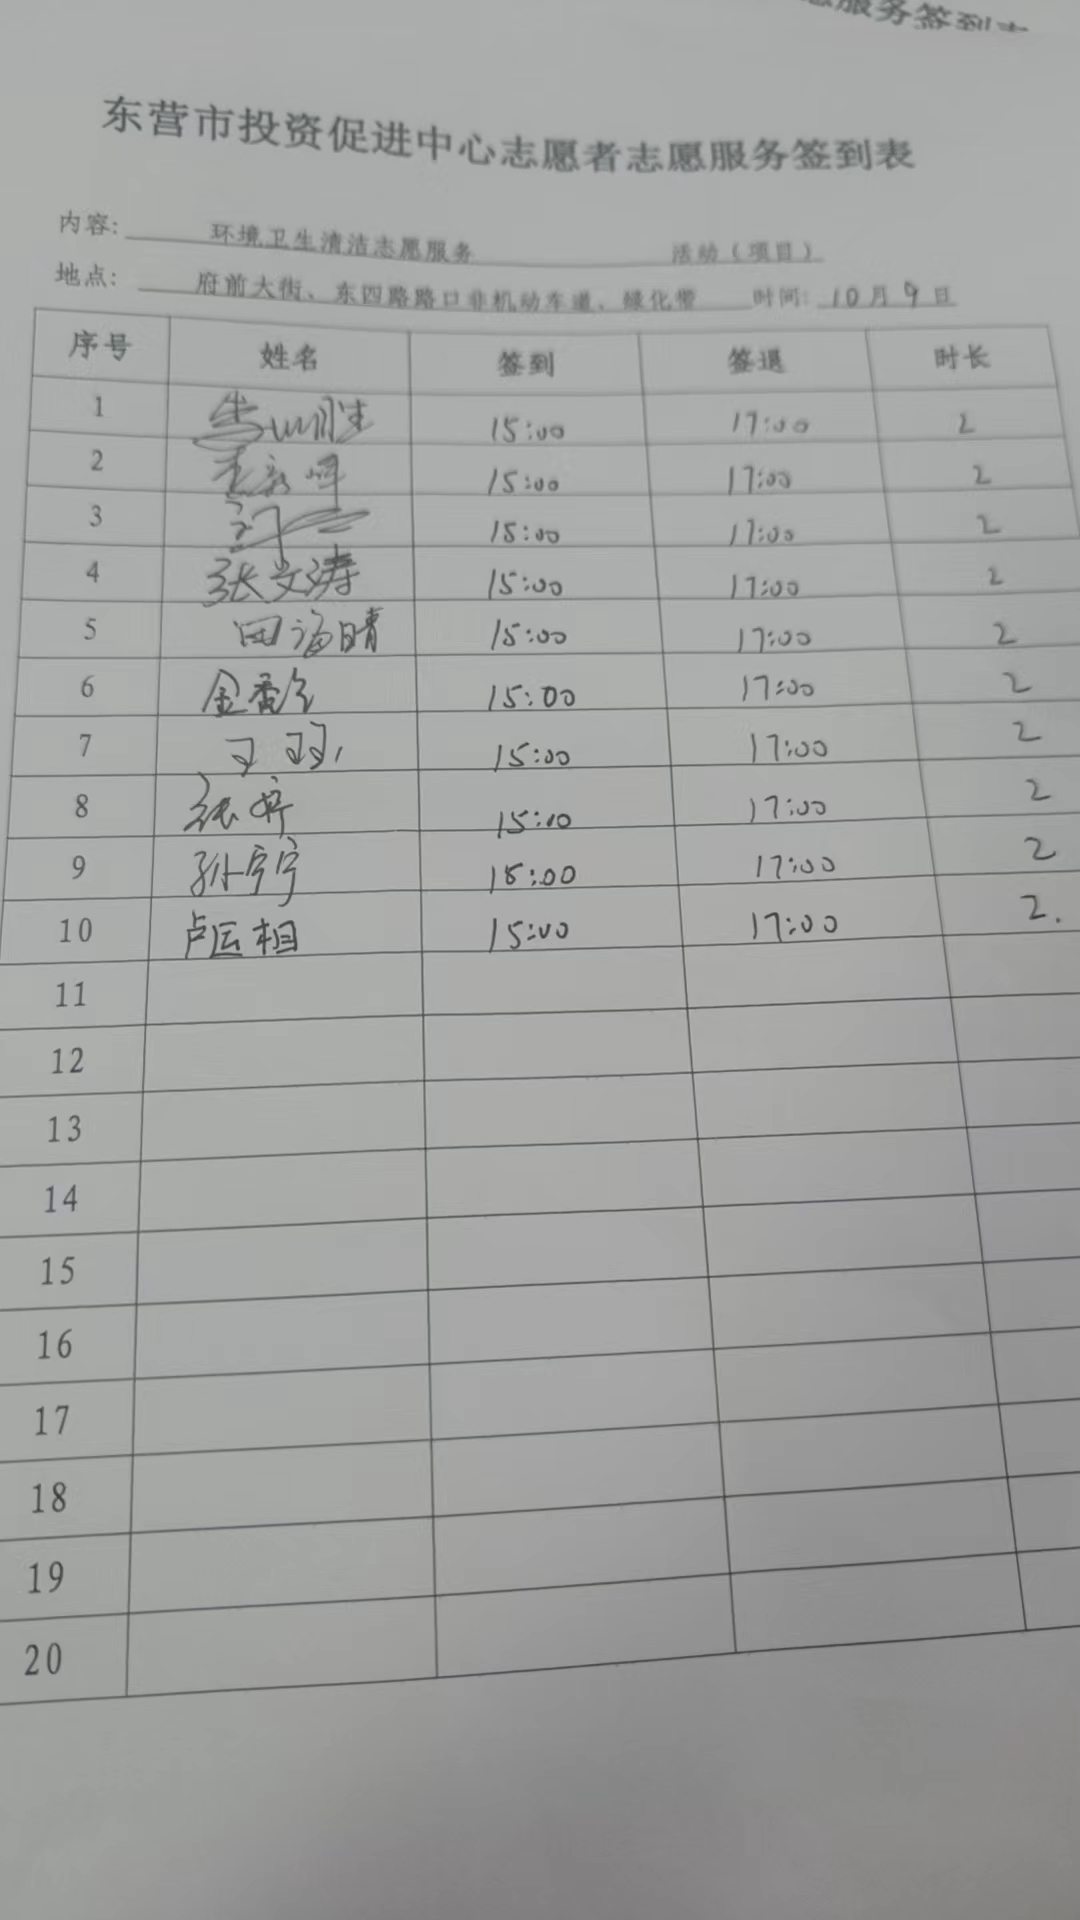 志愿服务签到表
东营市投资促进中心志愿者志愿服务签到表
内容: 环境卫生清洁志愿服务 活动(项目)
地点: 府前大街、东四路路口非机动车道、绿化带 时间: 10月9日
序号 姓名 签到 签退 时长
1 15:00 17:00 2
2 15:00 17:00 2
3 15:00 17:00 2
4 张文涛 15:00 17:00 2
5 田海晴 15:00 17:00 2
6 15:00 17:00 2
7 15:00 17:00 2
8 张婷 15:10 17:00 2
9 孙宁宁 15:00 17:00 2
10 卢运相 15:00 17:00 2.
11
12
13
14
15
16
17
18
19
20